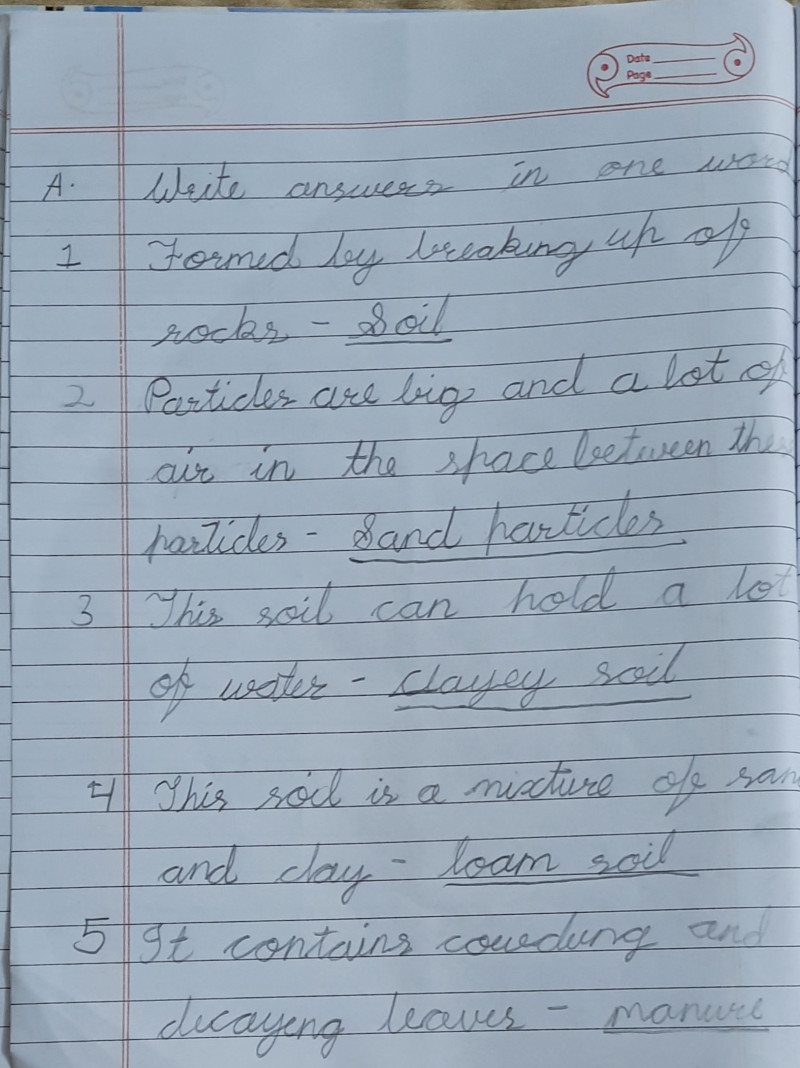 Date
Page
A. Write answers in one word
1 Formed by breaking up of
rocks - Soil
2 Particles are big and a lot of
air in the space between the
particles - Sand particles
3 This soil can hold a lot
of water - Clayey soil
4 This soil is a mixture of san
and clay - loam soil
5 It contains cowdung and
decayeng leaves - manure